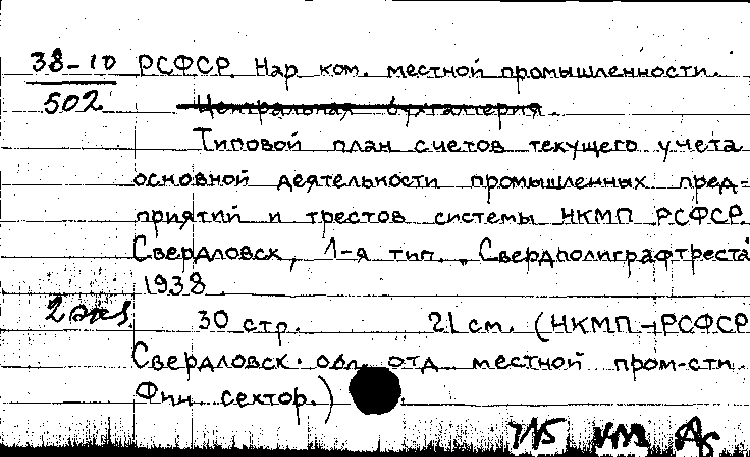 38-10 РСФСР. Нар ком. местной промышленности.
502 Центральная бухгалтерия.
Типовой план счетов текущего учета
основной деятельности промышленных пред=
приятий и трестов системы НКМП РСФСР.
Свердловск, 1-я тип. "Свердполиграфтреста"
1938
2 экз. 30 стр. 21 см. (НКМП РСФСР
Свердловск. обл. отд. местной пром-сти.
Фин. сектор.)